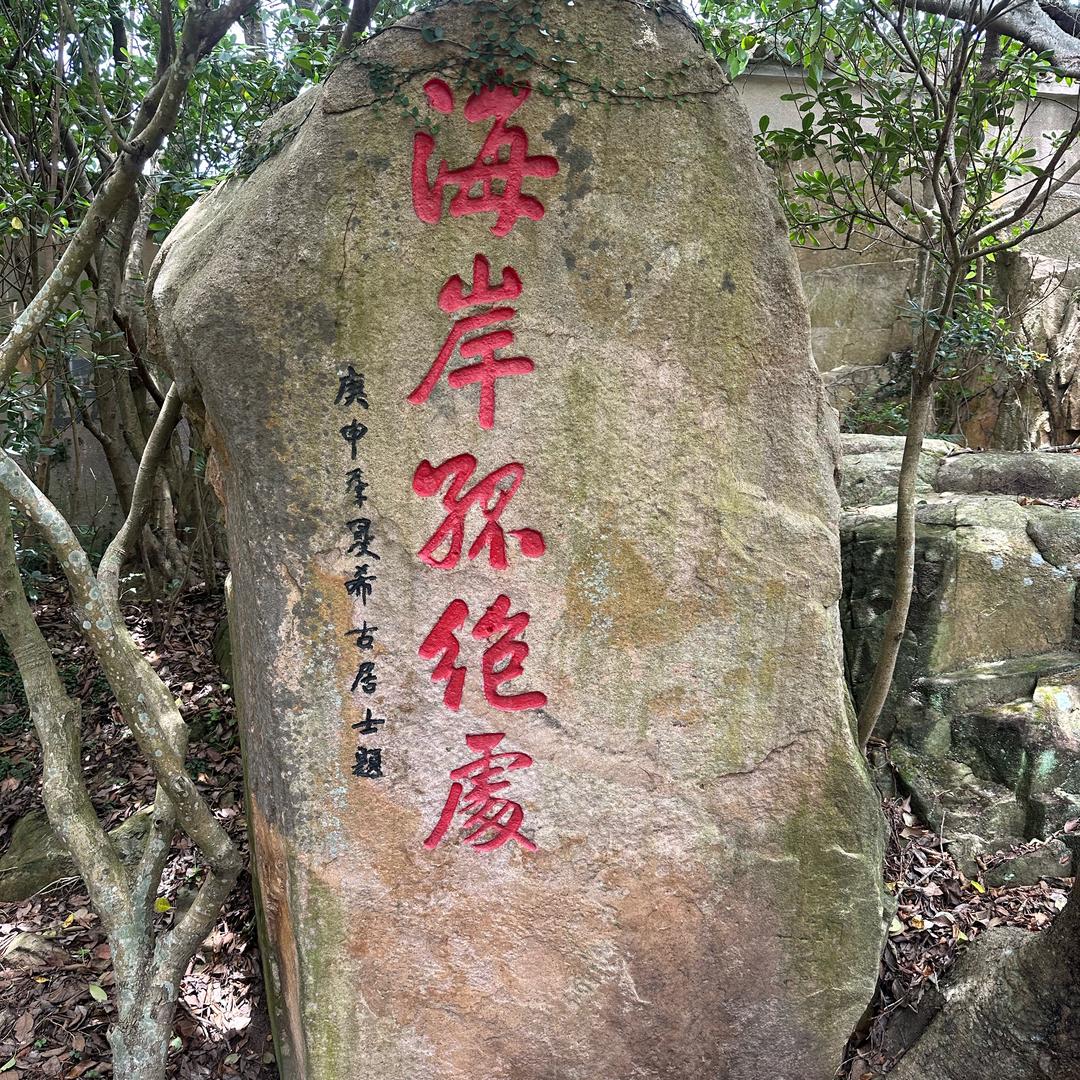 海岸孤絕處
庚申季夏希古居士題